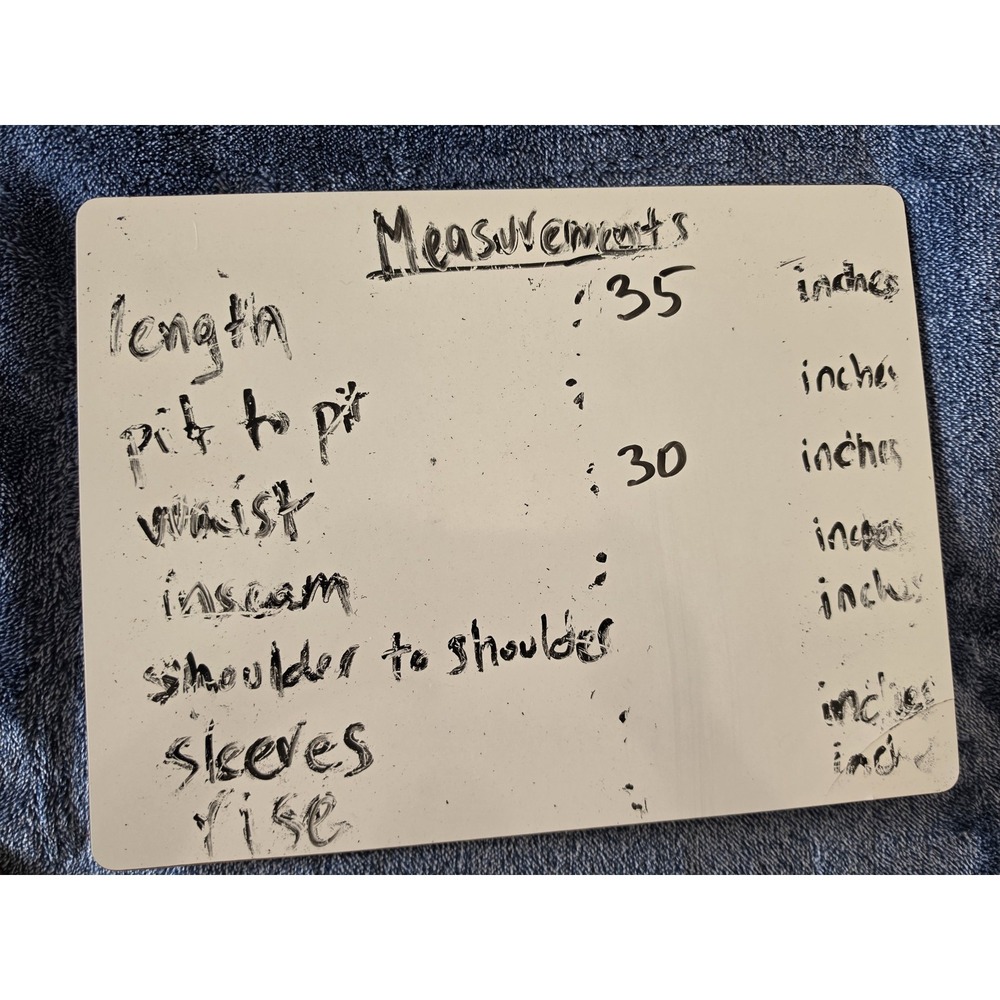 Measurements
length : 35 inches
pit to pit : inches
waist : 30 inches
inseam : inches
shoulder to shoulder inches
sleeves : inches
rise : inch